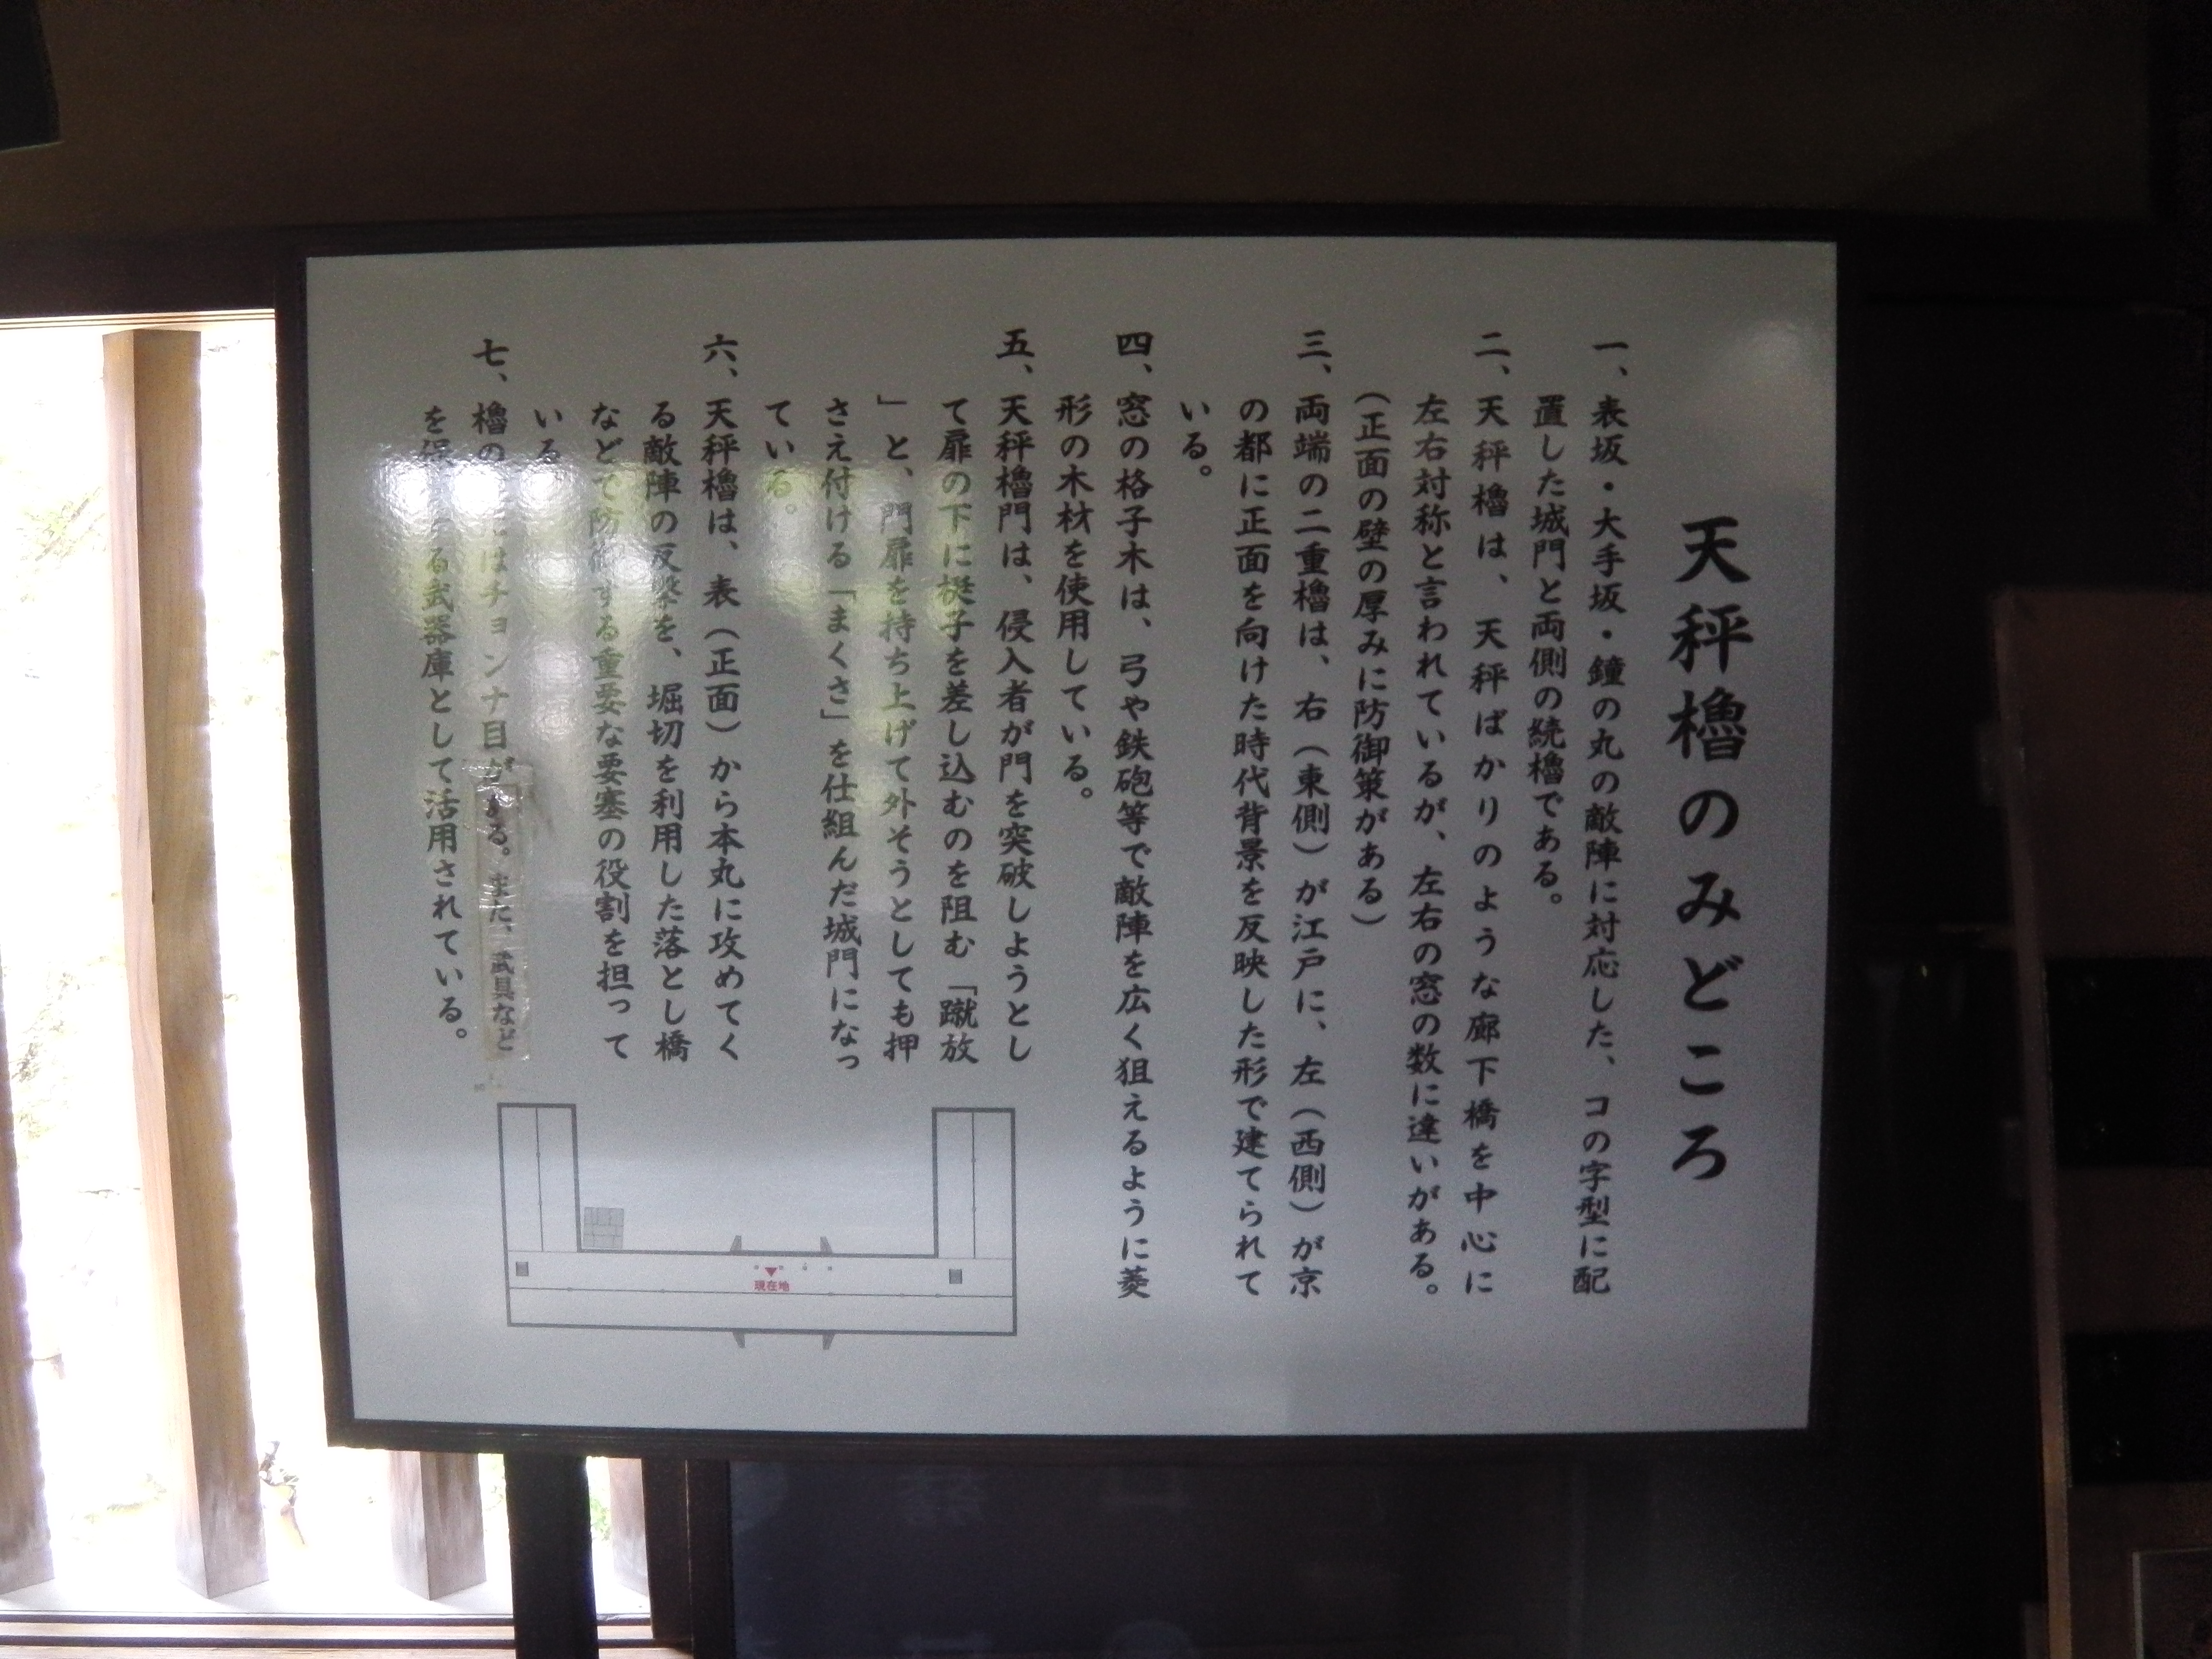 天秤櫓のみどころ
一、表坂・大手坂・鐘の丸の敵陣に対応した、コの字型に配
置した城門と両側の続櫓である。
二、天秤櫓は、天秤ばかりのような廊下橋を中心に
左右対称と言われているが、左右の窓の数に違いがある。
（正面の壁の厚みに防御策がある）
三、両端の二重櫓は、右（東側）が江戸に、左（西側）が京
の都に正面を向けた時代背景を反映した形で建てられて
いる。
四、窓の格子木は、弓や鉄砲等で敵陣を広く狙えるように菱
形の木材を使用している。
五、天秤櫓門は、侵入者が門を突破しようとし
て扉の下に梃子を差し込むのを阻む「蹴放
」と、門扉を持ち上げて外そうとしても押
さえ付ける「まくさ」を仕組んだ城門になっ
ている。
六、天秤櫓は、表（正面）から本丸に攻めてく
る敵陣の反撃を、堀切を利用した落とし橋
などで防御する重要な要塞の役割を担って
いる
七、櫓の はチョンナ目がある。また、武具など
を保 る武器庫として活用されている。
現在地